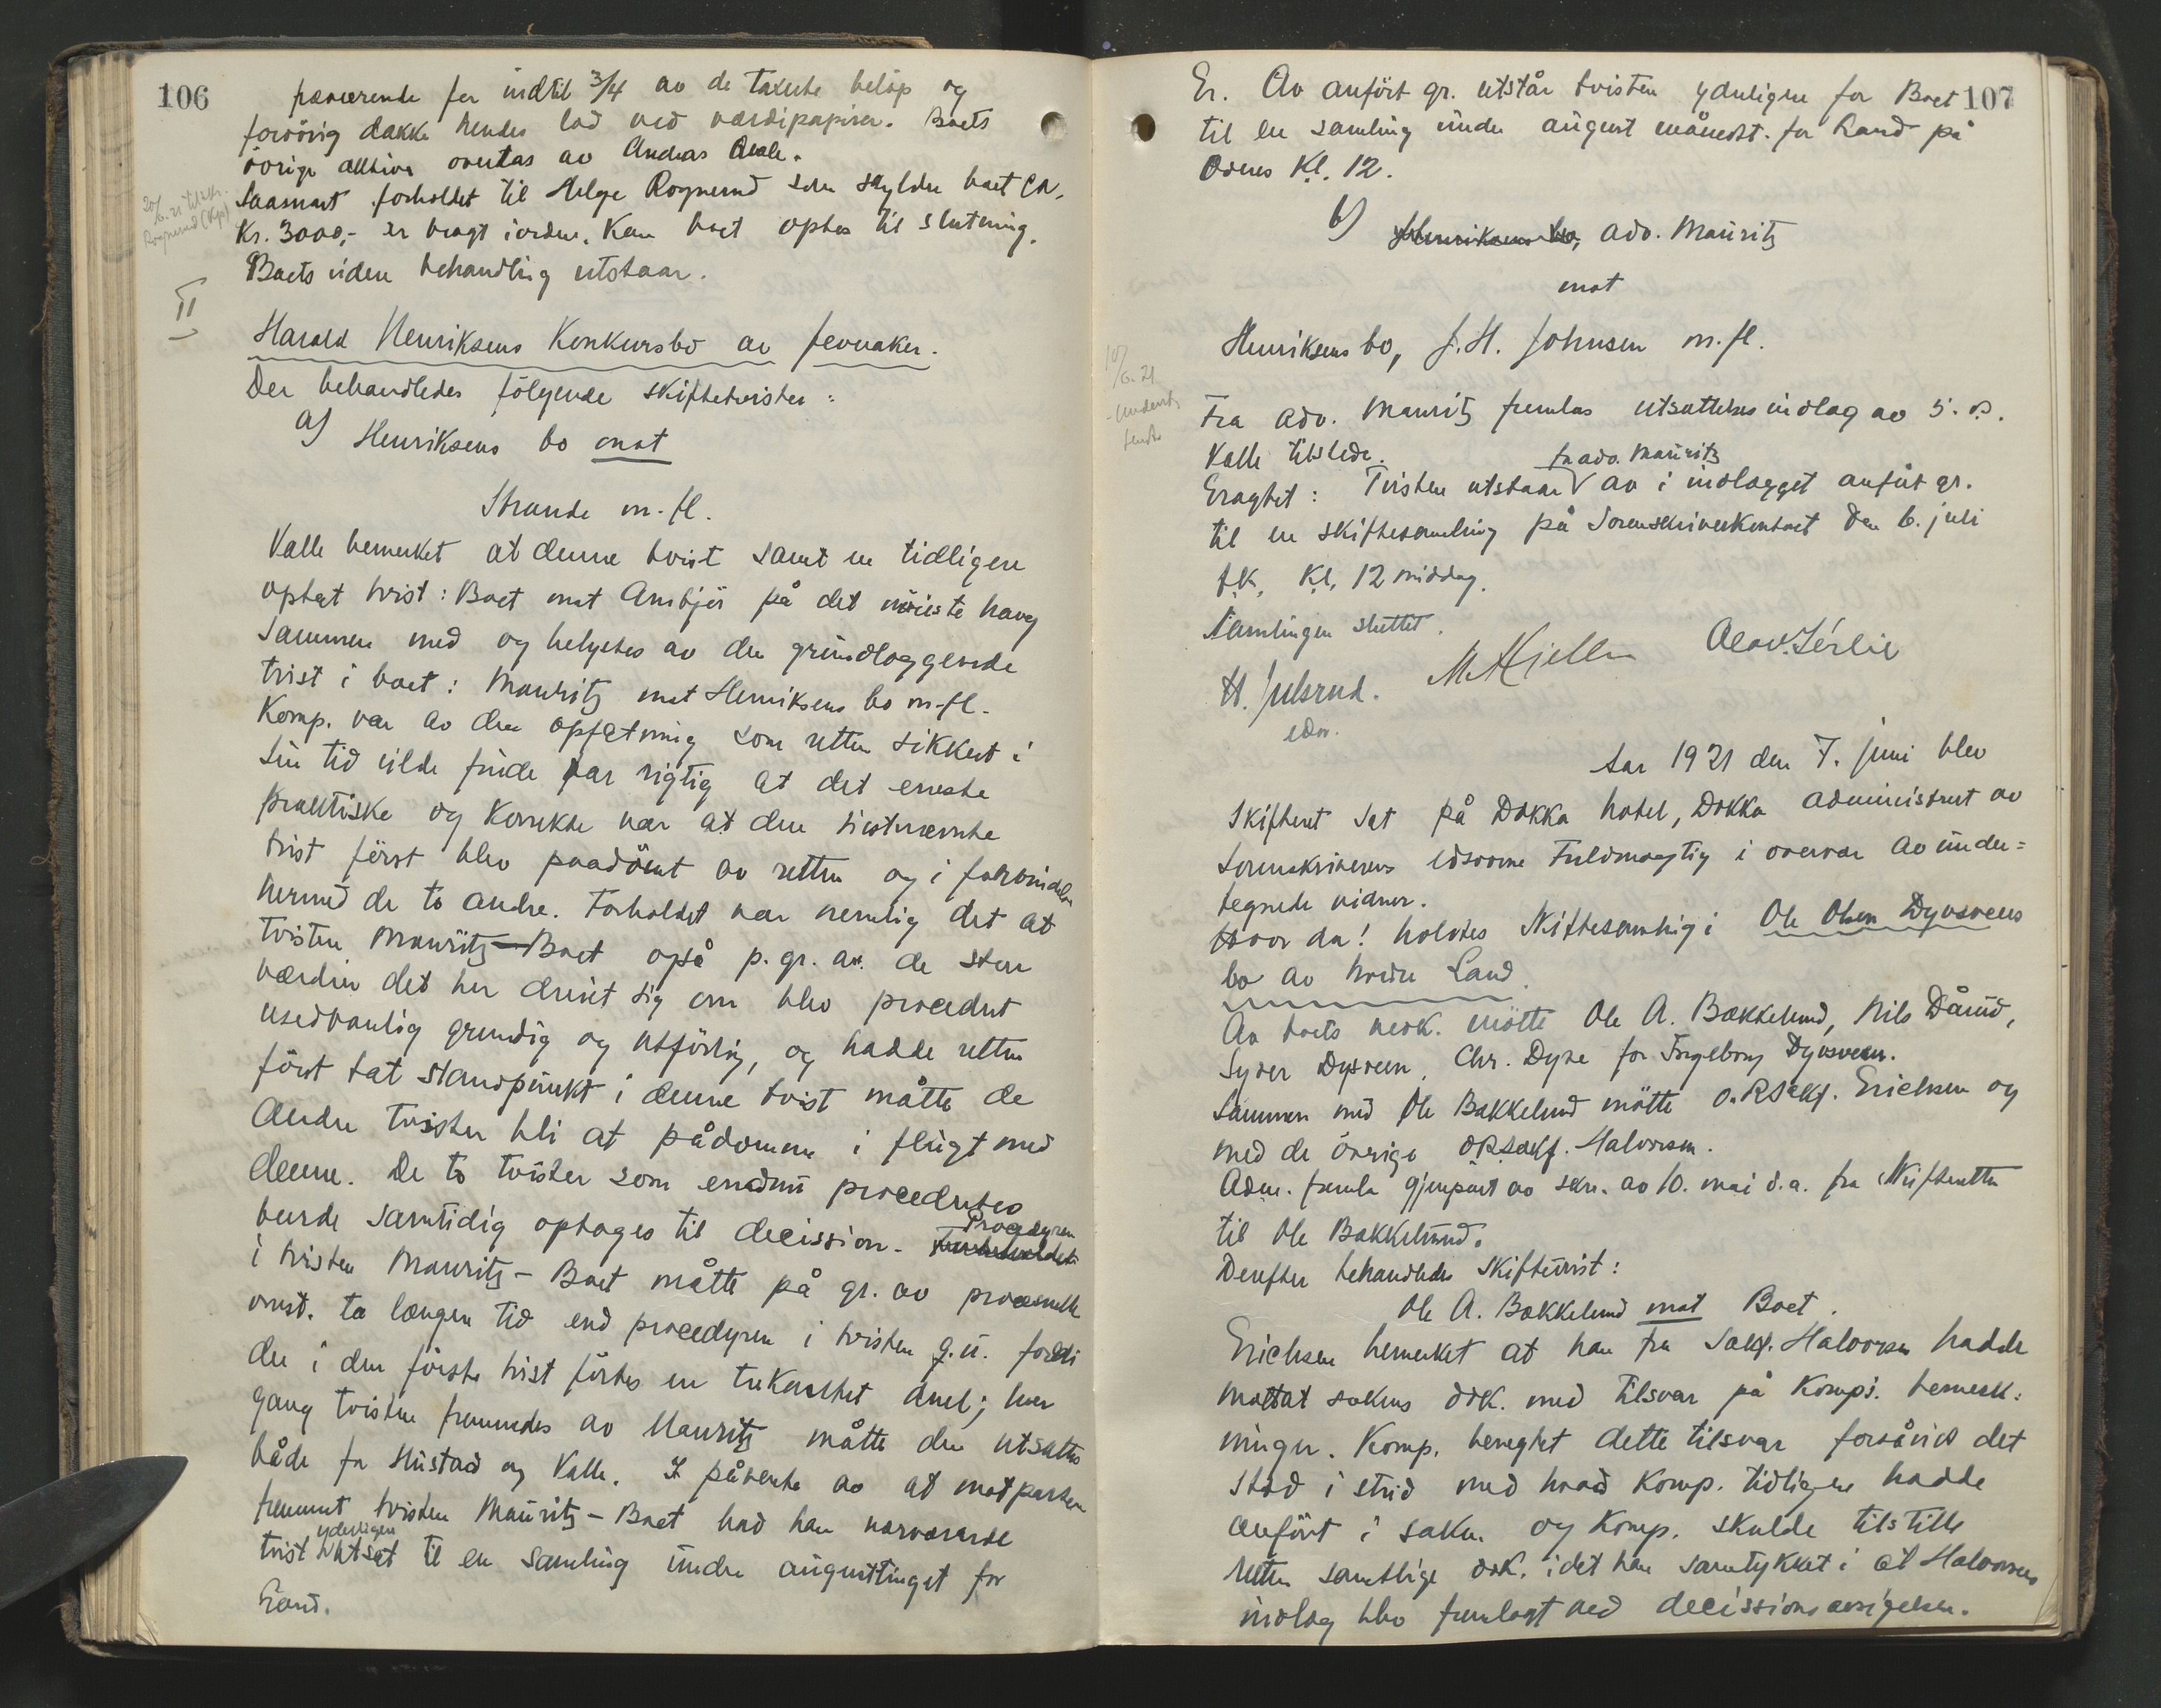 106
for indtil 3/4 av de takserte beløp og
forøvrig dække hendes lod ved værdipapirer. Boets
øvrige aktiva overtas av Andreas
Saasnart forholdet til Helge Rognerud som skylder boet ca.
Kr. 3000,- er bragt iorden, kan boet optas til slutning.
Boets videre behandling utstaar.
20/6.21 tilskr.
Rognerud (Kp)
II
Harald Henriksens Konkursbo av Jevnaker.
Der behandledes følgende skiftetvister:
a) Henriksens bo mot
Strande m.fl.
Valle bemerket at denne tvist samt en tidligere
optat tvist: Boet mot Ansbjør på det nøieste hang
sammen med og belystes av den grundlæggende
tvist i boet: Mauritz mot Henriksens bo m.fl.
Komp. var av den opfatning som retten sikkert i
sin tid vilde finde var rigtig at det eneste
praktiske og korrekte var at den sistnævnte
tvist først blev paadømt av retten og i forbindelse
hermed de to andre. Forholdet var nemlig det at
tvisten Mauritz - Boet også p.gr.av. de store
værdier det her dreiet sig om blev procedert
usedvanlig grundig og utførlig, og hadde retten
først tat standpunkt i denne tvist måtte de
andre tvister bli at pådømme i flugt med
denne. De to tvister som endnu procedertes
burde samtidig optages til decission. Forholdet Procedyren
i tvisten Mauritz - Boet måtte på gr. av processuelle
omst. ta længere tid end procedyren i tvisten g.u. fordi
der i den første tvist førtes en trekantet duel; hver
gang tvisten fremmedes av Mauritz måtte den utsættes
både for Hustad og Valle. I påvente av at motparten
fremmet tvisten Mauritz - Boet bad han nærværende
tvist yderligere utsat til en samling under augusttinget for
Land.
107
Er. Av anført gr. utstår tvisten yderligere for Boet
til en samling under august måneds t. for Land på
Odnes Kl. 12.
b) Henriksens bo, adv. Mauritz
mot
Henriksens bo, J.H. Johnsen m.fl.
10/6.21
Fra adv. Mauritz fremlas utsættelsesindlæg av 5. ds.
Valle tilstede.
Eragtet: Tvisten utstaar for adv. Mauritz av i indlægget anført gr.
til en skiftesamling på Sorenskriverkontoret den 6. juli
f.k. Kl. 12 middag.
Samlingen sluttet.
H. Julsrud. M Kjellen Olav Lerlie
edsv.
Aar 1921 den 7. juni blev
skifteret sat på Dokka hotel, Dokka administrert av
sorenskriverens edsvorne Fuldmægtig i overvær av under=
tegnede vidner.
Hvor da! holdtes skiftesamling i Ole Olsen Dyvsveens
bo av Nordre Land.
Av boets vedk. møtte Ole A. Bækkelund, Nils Dålid,
Syver Dysveen, Chr. Dyre for Ingeborg Dyvsveen.
Sammen med Ole Bækkelund møtte O.R.sakf. Erichsen og
med de øvrige ORsakf. Halvorsen.
Adm. fremla gjenpart av skr. av 10. mai d.a. fra skifteretten
til Ole Bækkelund.
Derefter behandledes skiftetvist:
Ole A. Bækkelund mot Boet.
Erichsen bemerket at han fra Sakf. Halvorsen hadde
mottat sakens dok. med tilsvar på Komps. bemerk=
ninger. Komp. benegtet dette tilsvar forsåvidt det
stod i strid med hvad Komp. tidligere hadde
anført i saken og Komp. skulde tilstille
retten samtlige dok. idet han samtykket i at Halvorsens
indlæg blev fremlagt ved decissionsavsigelsen.